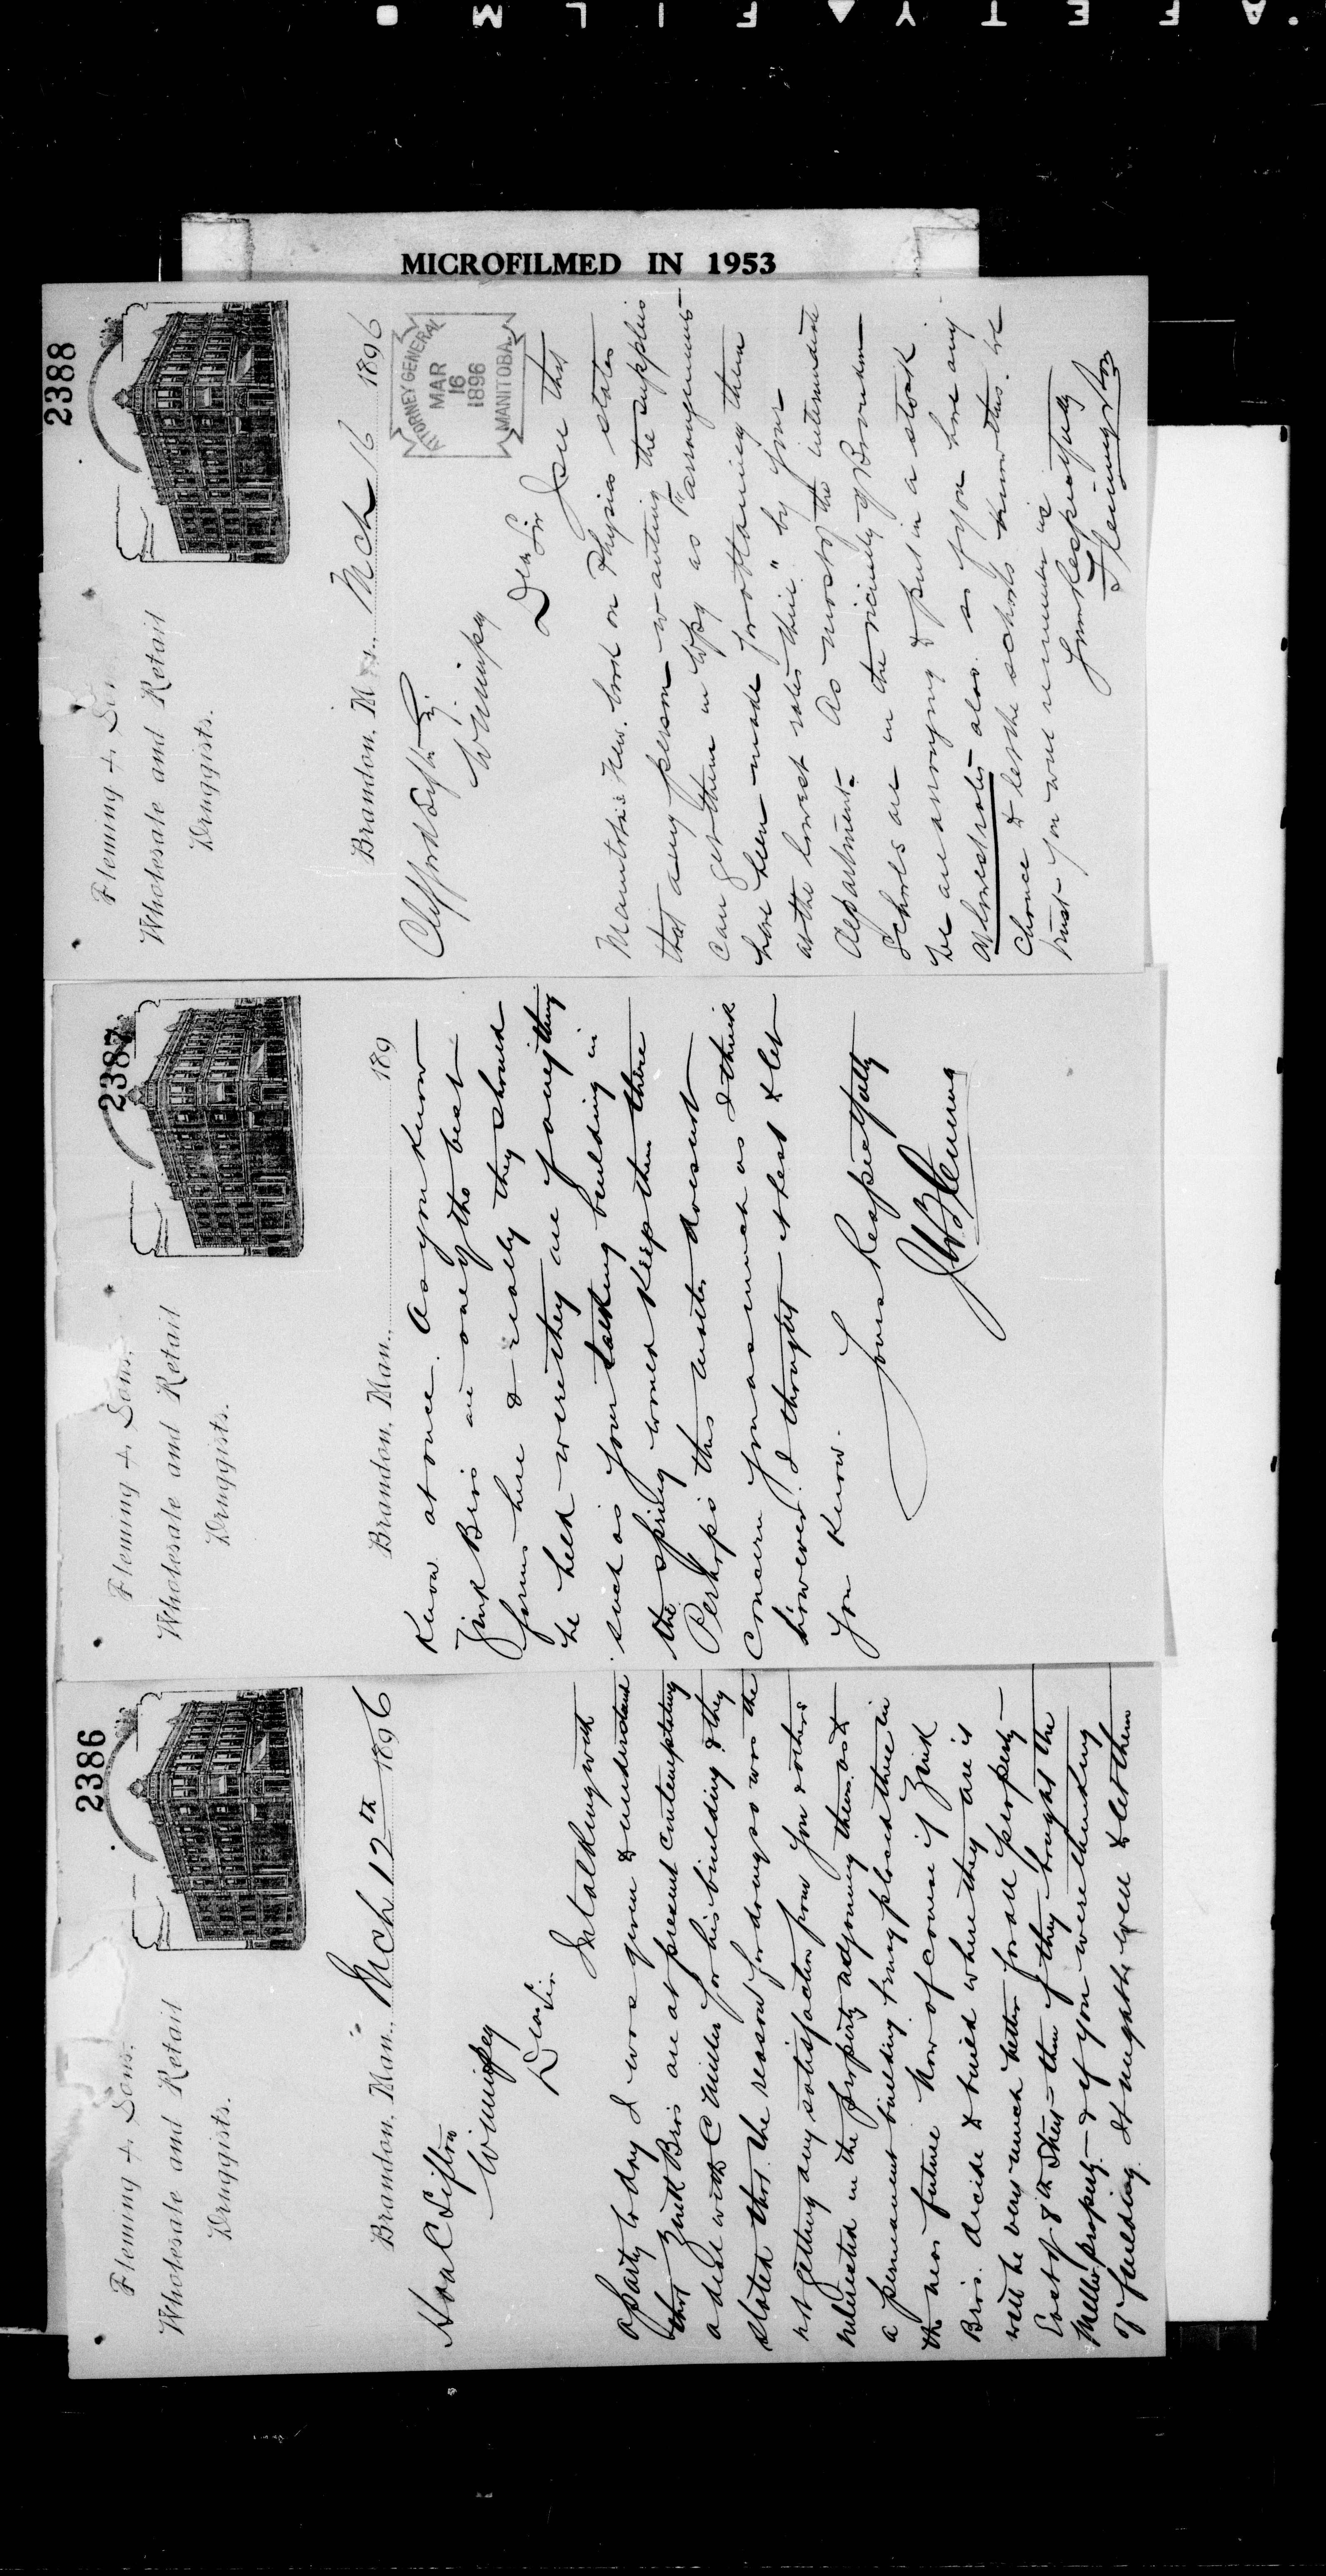 MICROFILMED IN 1953
2386
Fleming & Sons.
Wholesale and Retail
Druggists.
Brandon, Man., Mch 12th 1896
Hon C Sifton
Winnipeg
Dear Sir
In talking with
a party to day I was given to understand
that Zink Bros are at present contemplating
a deal with C Miller for his building & they
stated that the reason for doing so was the
not getting any satisfaction from you & others
interested in the property adjoining them as to
a permanent building being placed there in
the near future Now of course if Zink
Bros. decide to build where they are it
will be very much better for all property
East of 8th Street than if they bought the
Miller property - & if you were thinking
of building it might be well to let them
2387
Fleming & Sons.
Wholesale and Retail
Druggists.
Brandon, Man., 189
know at once. As you know
Zink Bros are one of the best
firms here & really they should
be held where they are if anything
such as your talking building in
the spring would keep them there
Perhaps this matter doesn't
concern you as much as I think
however I thought it best to let
you know.
Yours Respectfully
J W Fleming
2388
Fleming & Son
Wholesale and Retail
Druggists.
Brandon, M Mch 16 1896
ATTORNEY GENERAL
MAR
16
1896
MANITOBA
Clifford Sifton Esq.
Winnipeg
Dear Sir
I see that
book on Physics states
that any person wanting the supplies
can get them in Wpg as "arrangements
have been made for obtaining them
at the lowest rates there" by your
department. As most of the intermediate
schools are in the vicinity of Brandon
we are arranging to put in a stock
at lowest rates also. so if you have any
chance to let the schools know this. we
trust you will remember us
Yours Respectfully
Fleming & Sons